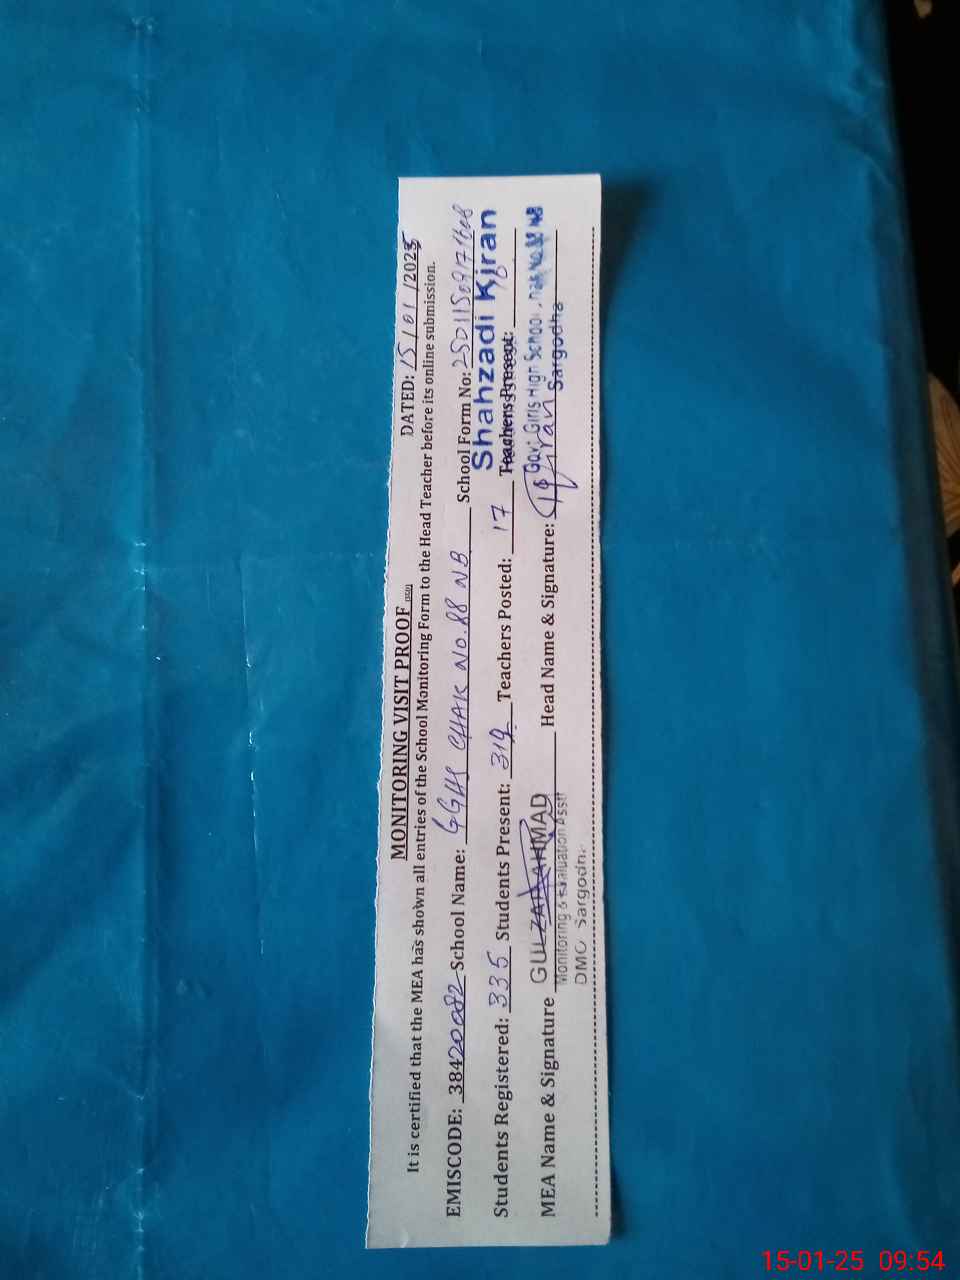 MONITORING VISIT PROOF DATED: 15/01/2025
It is certified that the MEA has shown all entries of the School Monitoring Form to the Head Teacher before its online submission.
EMISCODE: 38420082 School Name: GGHS CHAK NO.88 NB School Form No:
Shahzadi Kiran
Students Registered: 335 Students Present: 319 Teachers Posted: 17 Teachers Present: 16
Govt Girls High School,
MEA Name & Signature GULZAR AHMAD Head Name & Signature: Kiran Sargodha
Monitoring & Evaluation Asstt
DMO Sargodha
15-01-25 09:54